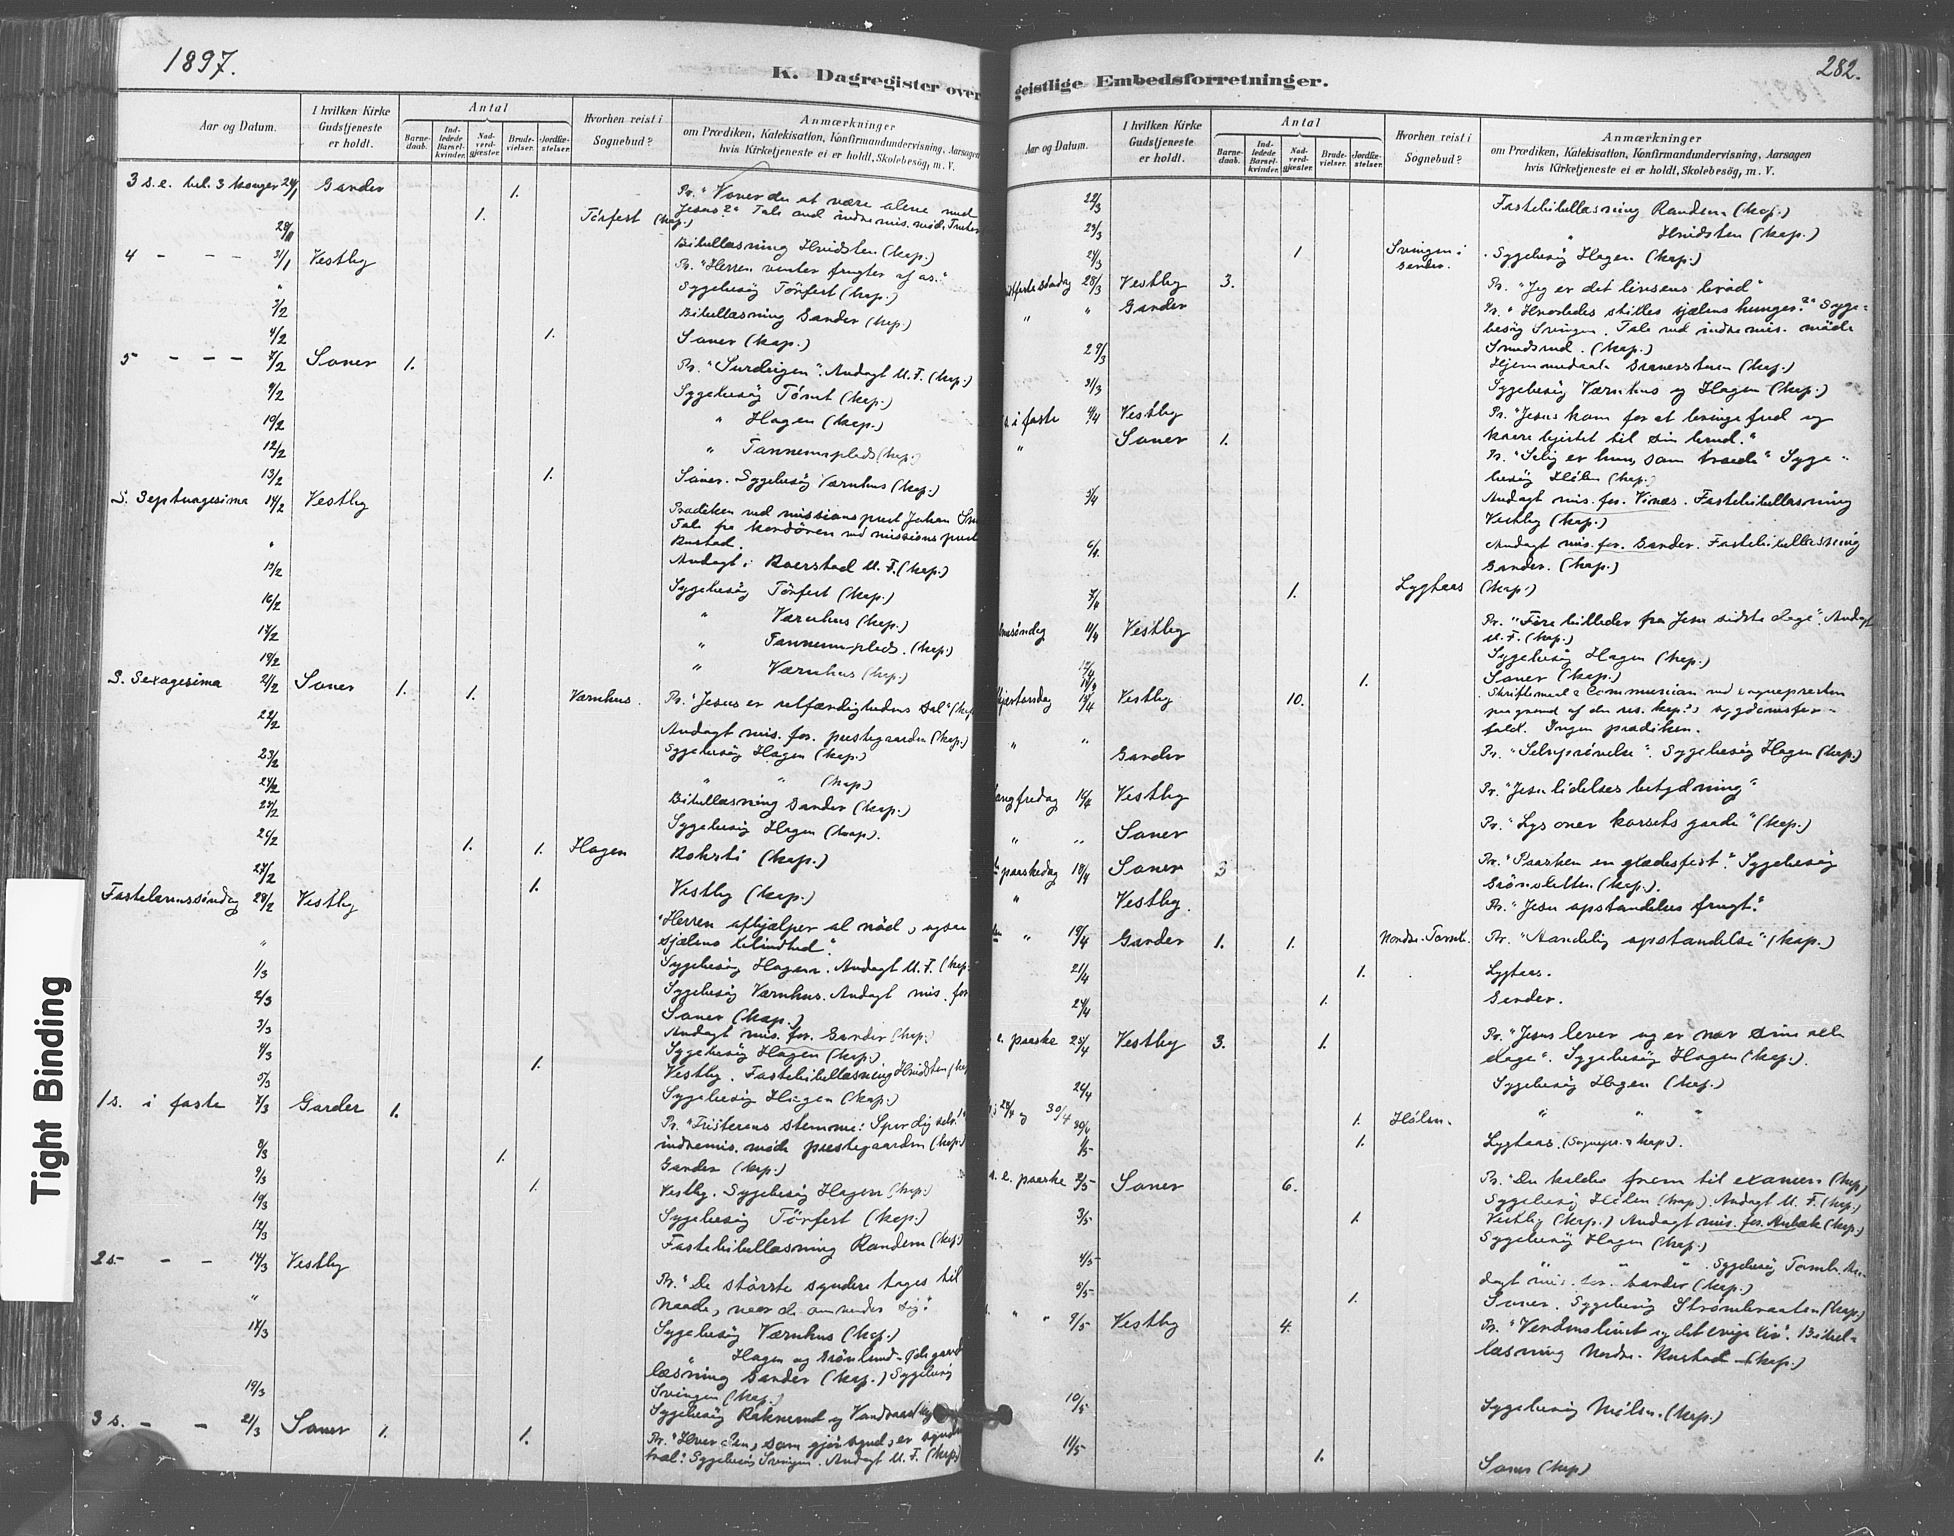 1897.
K. Dagregister over
Aar og Datum.
I hvilken Kirke Gudstjeneste er holdt.
Antal
Barne-daab.
Ind-ledede Barsel-kvinder.
Nad-verd-gjæster.
Brude-vielser.
Jordfæ-stelser.
Hvorhen reist i Sognebud?
Anmærkninger
om Prædiken, Katekisation, Konfirmandundervisning, Aarsagen
hvis Kirketjeneste ei er holdt, Skolebesög, m. V.
3 s. e. hel. 3 konger 24/1 Garder 1. Pr. "Vover du at være alene med
Jesus?" Tale ved indremis. möde
1. Törfest (kap.)
28/1 Bibellæsning Hvidsten (kap.)
4 - - - 31/1 Vestby Pr. "Herren venter frugter af os."
" Sygebesög Törfest (kap.)
2/2 Bibellæsning Garder (kap.)
4/2 1. Soner (kap.)
5 - - - 7/2 Soner 1. Pr. "Surdeigen". Andagt U. F. (kap.)
9/2 Sygebesög (kap.)
10/2 " Hagen (kap.)
12/2 " (kap.)
13/2 1. Soner. Sygebesög Værnhus (kap.)
S. Septuagesima 14/2 Vestby Prædiken ved missionsprest Johan
Tale fra kordören ved missionsprest
Rustad.
" Andagt i U. F. (kap.)
15/2 Sygebesög Törfest (kap.)
16/2 " Værnhus (kap.)
17/2 " (kap.)
19/2 " Værnhus (kap.)
S. Sexagesima 21/2 Soner 1. 1. Værnhus. Pr. "Jesus er retfærdighedens sol"
22/2 Andagt mis. for. prestegaarden (kap.)
23/2 Sygebesög Hagen (kap.)
24/2 " " (kap.)
25/2 Bibellæsning Garder (kap.)
26/2 Sygebesög Hagen (kap.).
1. 1. Hagen (kap.)
27/2 1. Vestby (kap.)
Fastelavnssöndag 28/2 Vestby "Herren afhjælper al nöd, ogsaa
sjælens blindhed."
" Sygebesög Hagen. Andagt U. F. (kap.
1/3 Sygebesög Værnhus. Andagt mis. for
2/3 Soner (kap.)
3/3 Andagt mis. for. Garder (kap.)
4/3 Sygebesög Hagen (kap.)
5/3 1. Vestby. Fastebibellæsning Hvidsten (kap
1 s. i faste 7/3 Garder 1. Sygebesög Hagen (kap.)
Pr. "Fristerens stemme: Spar dig selv!"
8/3 indremis. möde prestegaarden (kap.)
9/3 1. Garder (kap.)
10/3 1. Vestby. Sygebesög Hagen (kap.)
12/3 Sygebesög Törfest (kap.)
Fastebibellæsning Randem (kap)
2 s. - - 14/3 Vestby Pr. "De störste syndere tages til
" naade, naar de omvender sig."
18/3 Sygebesög Værnhus (kap.)
" Hagen og Grönlund
læsning Garder (kap.) Sygebesög
19/3 Svingen (kap.)
Sygebesög
3 s. - - 21/3 Soner 1. 1. Pr. "Hver den, som gjör synd, er syndens
træl." Sygebesög Svingen. Andagt U. F. (kap)
geistlige Embedsforretninger.
282.
Aar og Datum.
I hvilken Kirke Gudstjeneste er holdt.
Antal
Barne-daab.
Ind-ledede Barsel-kvinder.
Nad-verd-gjæster.
Brude-vielser.
Jordfæ-stelser.
Hvorhen reist i Sognebud?
Anmærkninger
om Prædiken, Katekisation, Konfirmandundervisning, Aarsagen
hvis Kirketjeneste ei er holdt, Skolebesög, m. V.
22/3 Fastebibellæsning Randem (kap.)
23/3 " Hvidsten (kap.)
24/3 1 Svingen i sander. Sygebesög Hagen (kap.)
28/3 Vestby 3. Pr. "Jeg er det livsens bröd"
" " Garder Pr. "Hvorledes stilles sjælens hunger?" Syge-
besög Svingen. Tale ved indremis. möde
Smedsrud. (kap.)
29/3 Hjemmedaab (kap.)
31/3 Sygebesög Værnhus og Hagen (kap.)
s. i faste 4/4 Vestby Pr. "Jesus kom for at bringe fred og
" Soner 1. hjertet til sin brud."
Pr. "Salig er hun, som troede" Syge-
besög Hölen (kap.)
Andagt mis. for. Vinæs. Fastebibellæsning
Vestby (kap.)
6/4 Andagt mis. for. Garder. Fastebibellæsning
Garder. (kap.)
7/4 1. Lygtaas (kap.)
11/4 Vestby Pr. "Fire billeder fra Jesu sidste dage". Andagt
U. F. (kap.)
Sygebesög Hagen (kap.)
1. Soner (kap.)
15/4 Vestby 10. Skriftemaal & Communion ved sognepresten
paa grund af den res. kap.'s sygdomsfor-
fald. Ingen prædiken.
" " Garder Pr. "Selvprövelse". Sygebesög Hagen (kap.)
langfredag 16/4 Vestby Pr. "Jesu lidelses betydning"
" " Soner Pr. "Lys over korsets gaade" (kap.)
paaskedag 18/4 Soner 3 Pr. "Paasken en glædesfest." Sygebesög
Grönsletten (kap.).
" Vestby. Pr. "Jesu opstandelses frugt."
" 19/4 Garder 1. 1. Nordre. Tomb. Pr. "Aandelig opstandelse" (kap.)
21/4 1. Lygtaas.
24/4 1. Garder.
e. paaske 25/4 Vestby 3. 1. Pr. "Jesus lever og er nær sine alle
dage". Sygebesög Hagen (kap.).
26/4 Sygebesög Hagen (kap.)
28/4 og 30/4 " " "
30/4 1. Hölen.
1/5 1. Lygtaas. (Sognepr. & kap.).
s. e. paaske 2/5 Soner 6. Pr. "Du kaldes frem til examen" (kap)
Sygebesög Hölen (kap.) Andagt U. F. (kap.)
3/5 1. Vestby (kap.) Andagt mis. for. (kap.)
Sygebesög Hagen (kap.)
4/5 " " " Sygebesög Tomb. An-
5/5 dagt mis. for. Garder (kap.)
1. Soner. Sygebesög Strömbraaten (kap.)
" " 9/5 Vestby 4. Pr. "Verdenslivet og det evige liv". Bibel-
læsning Nordre Rustad (kap.)
10/5 Sygebesög (kap.)
11/5 1. Soner (kap)
Tight Binding